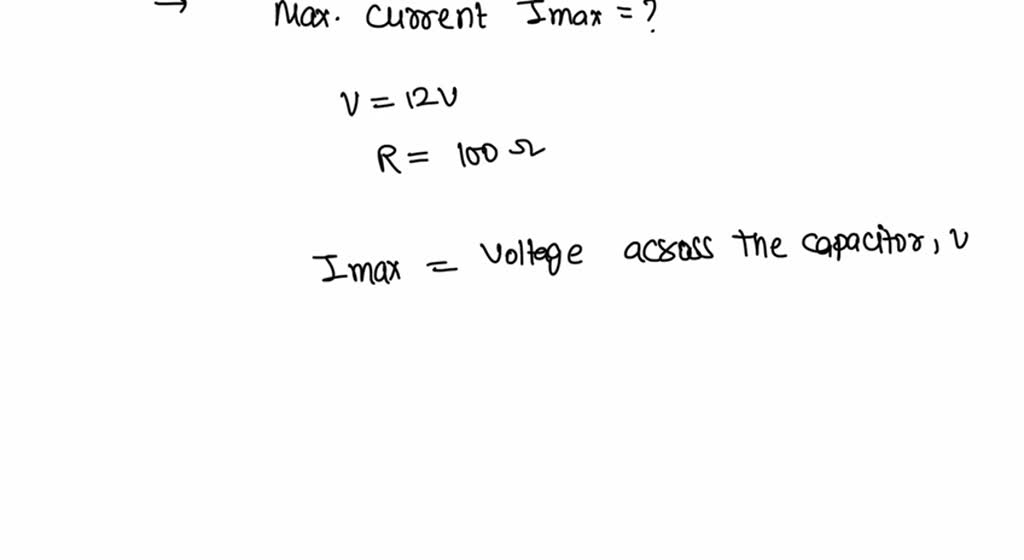 → Max. current Imax = ?
V = 12V
R = 100 Ω
Imax = voltege across the capacitor, V